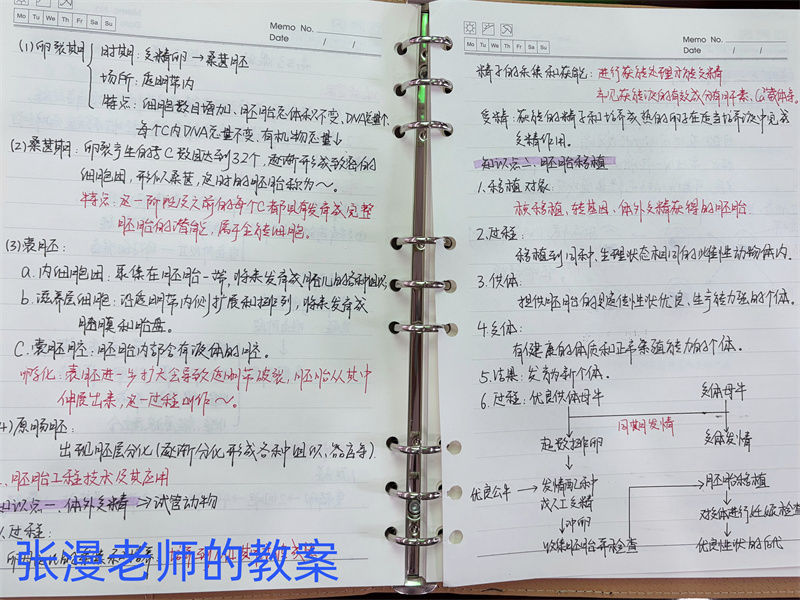 Memo No.
Mo Tu We Th Fr Sa Su
Date / /
(1)卵裂期
时期：受精卵→桑葚胚
场所：透明带内
特点：细胞数目增加、胚胎总体积不变、DNA总量↑、
每个C内DNA总量不变、有机物总量↓
(2)桑葚期：卵裂产生的子C数目达到32个，逐渐形成致密的
细胞团，形似桑葚，这时的胚胎称为～。
特点：这一阶段及之前的每个C都具有发育成完整
胚胎的潜能，属于全能细胞。
(3)囊胚：
a.内细胞团：聚集在胚胎一端，将来发育成胎儿的各种组织
b.滋养层细胞：沿透明带内侧扩展和排列，将来发育成
胎膜和胎盘。
C.囊胚腔：胚胎内部含有液体的腔。
孵化：囊胚进一步扩大会导致透明带破裂，胚胎从其中
伸展出来，这一过程叫作～。
4)原肠胚：
出现胚层分化(逐渐分化形成各种组织、器官等)
、胚胎工程技术及其应用
知识点一、体外受精→试管动物
1.过程：
张漫老师的教案
Memo No.
Mo Tu We Th Fr Sa Su
Date / /
精子的采集和获能：进行获能处理才能受精
常见获能液的有效成分有肝素、Ca²⁺载体等。
受精：获能的精子和培养成熟的卵子在适当培养液中完成
受精作用。
知识点二、胚胎移植
1.移植对象：
核移植、转基因、体外受精获得的胚胎
2.过程：
移植到同种、生理状态相同的雌性动物体内。
3.供体：
提供胚胎的是遗传性状优良、生产能力强的个体。
4.受体：
有健康的体质和正常繁殖能力的个体。
5.结果：发育为新个体。
6.过程：优良供体母牛
受体母牛
同期发情
超数排卵
受体发情
优良公牛→发情配种
或人工受精
↓冲卵
收集胚胎并检查
胚胎移植
对受体进行妊娠检查
优良性状的后代